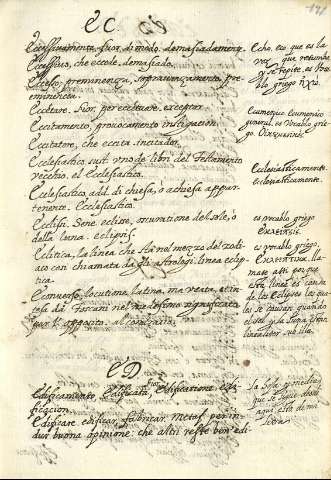 EC
171
Eccessivamente, fuor di modo. demasiadamente.
Eccessivo, che eccede. demasiado.
Eccesso, preminenza, sopravanzamento. pre
eminencia.
Eccettare. Fior. per eccettuare. exceptar
Eccitamento, provocamento instigacion.
Eccitatore, che eccita. incitador.
Ecclesiastico sust. uno de libri del Testamento
vecchio. el Ecclesiastico.
Ecclesiastico add. di chiesa, o a chiesa appar
tenente. Ecclesiastico.
Eclissi. Sene. eclisse, oscuratione del sole, ò
della luna. eclipsi.
Eclitica, la linea che stà nel mezzo del zodi
aco con chiamata da gli astrologi. linea eclip
tica.
E converso, locutione latina, ma usata, et in
tesa da Toscani nel medesimo significato
per l' opposito. al contrario.
Echo, eco que es la
voz que retumba
y se repite. es voca
blo griego
Ecumenico Ecumenico
general. es vocablo grie
go
Ecclesiasticamente.
ecclesiasticamente.
es vocablo griego
es vocablo griego,
lla
mase assi porque
esta linea es causa
de los eclipses los qua
les se causan quando
el sol y la luna
linea
ED
Edificamento, Edificata, Edificatione. edi
ficacion.
Edificare. edificar, fabricar. metaf. per in
dur buona opinione: che altri reste ben edi-
La
que se sigue
aqui, esta de mi
letra